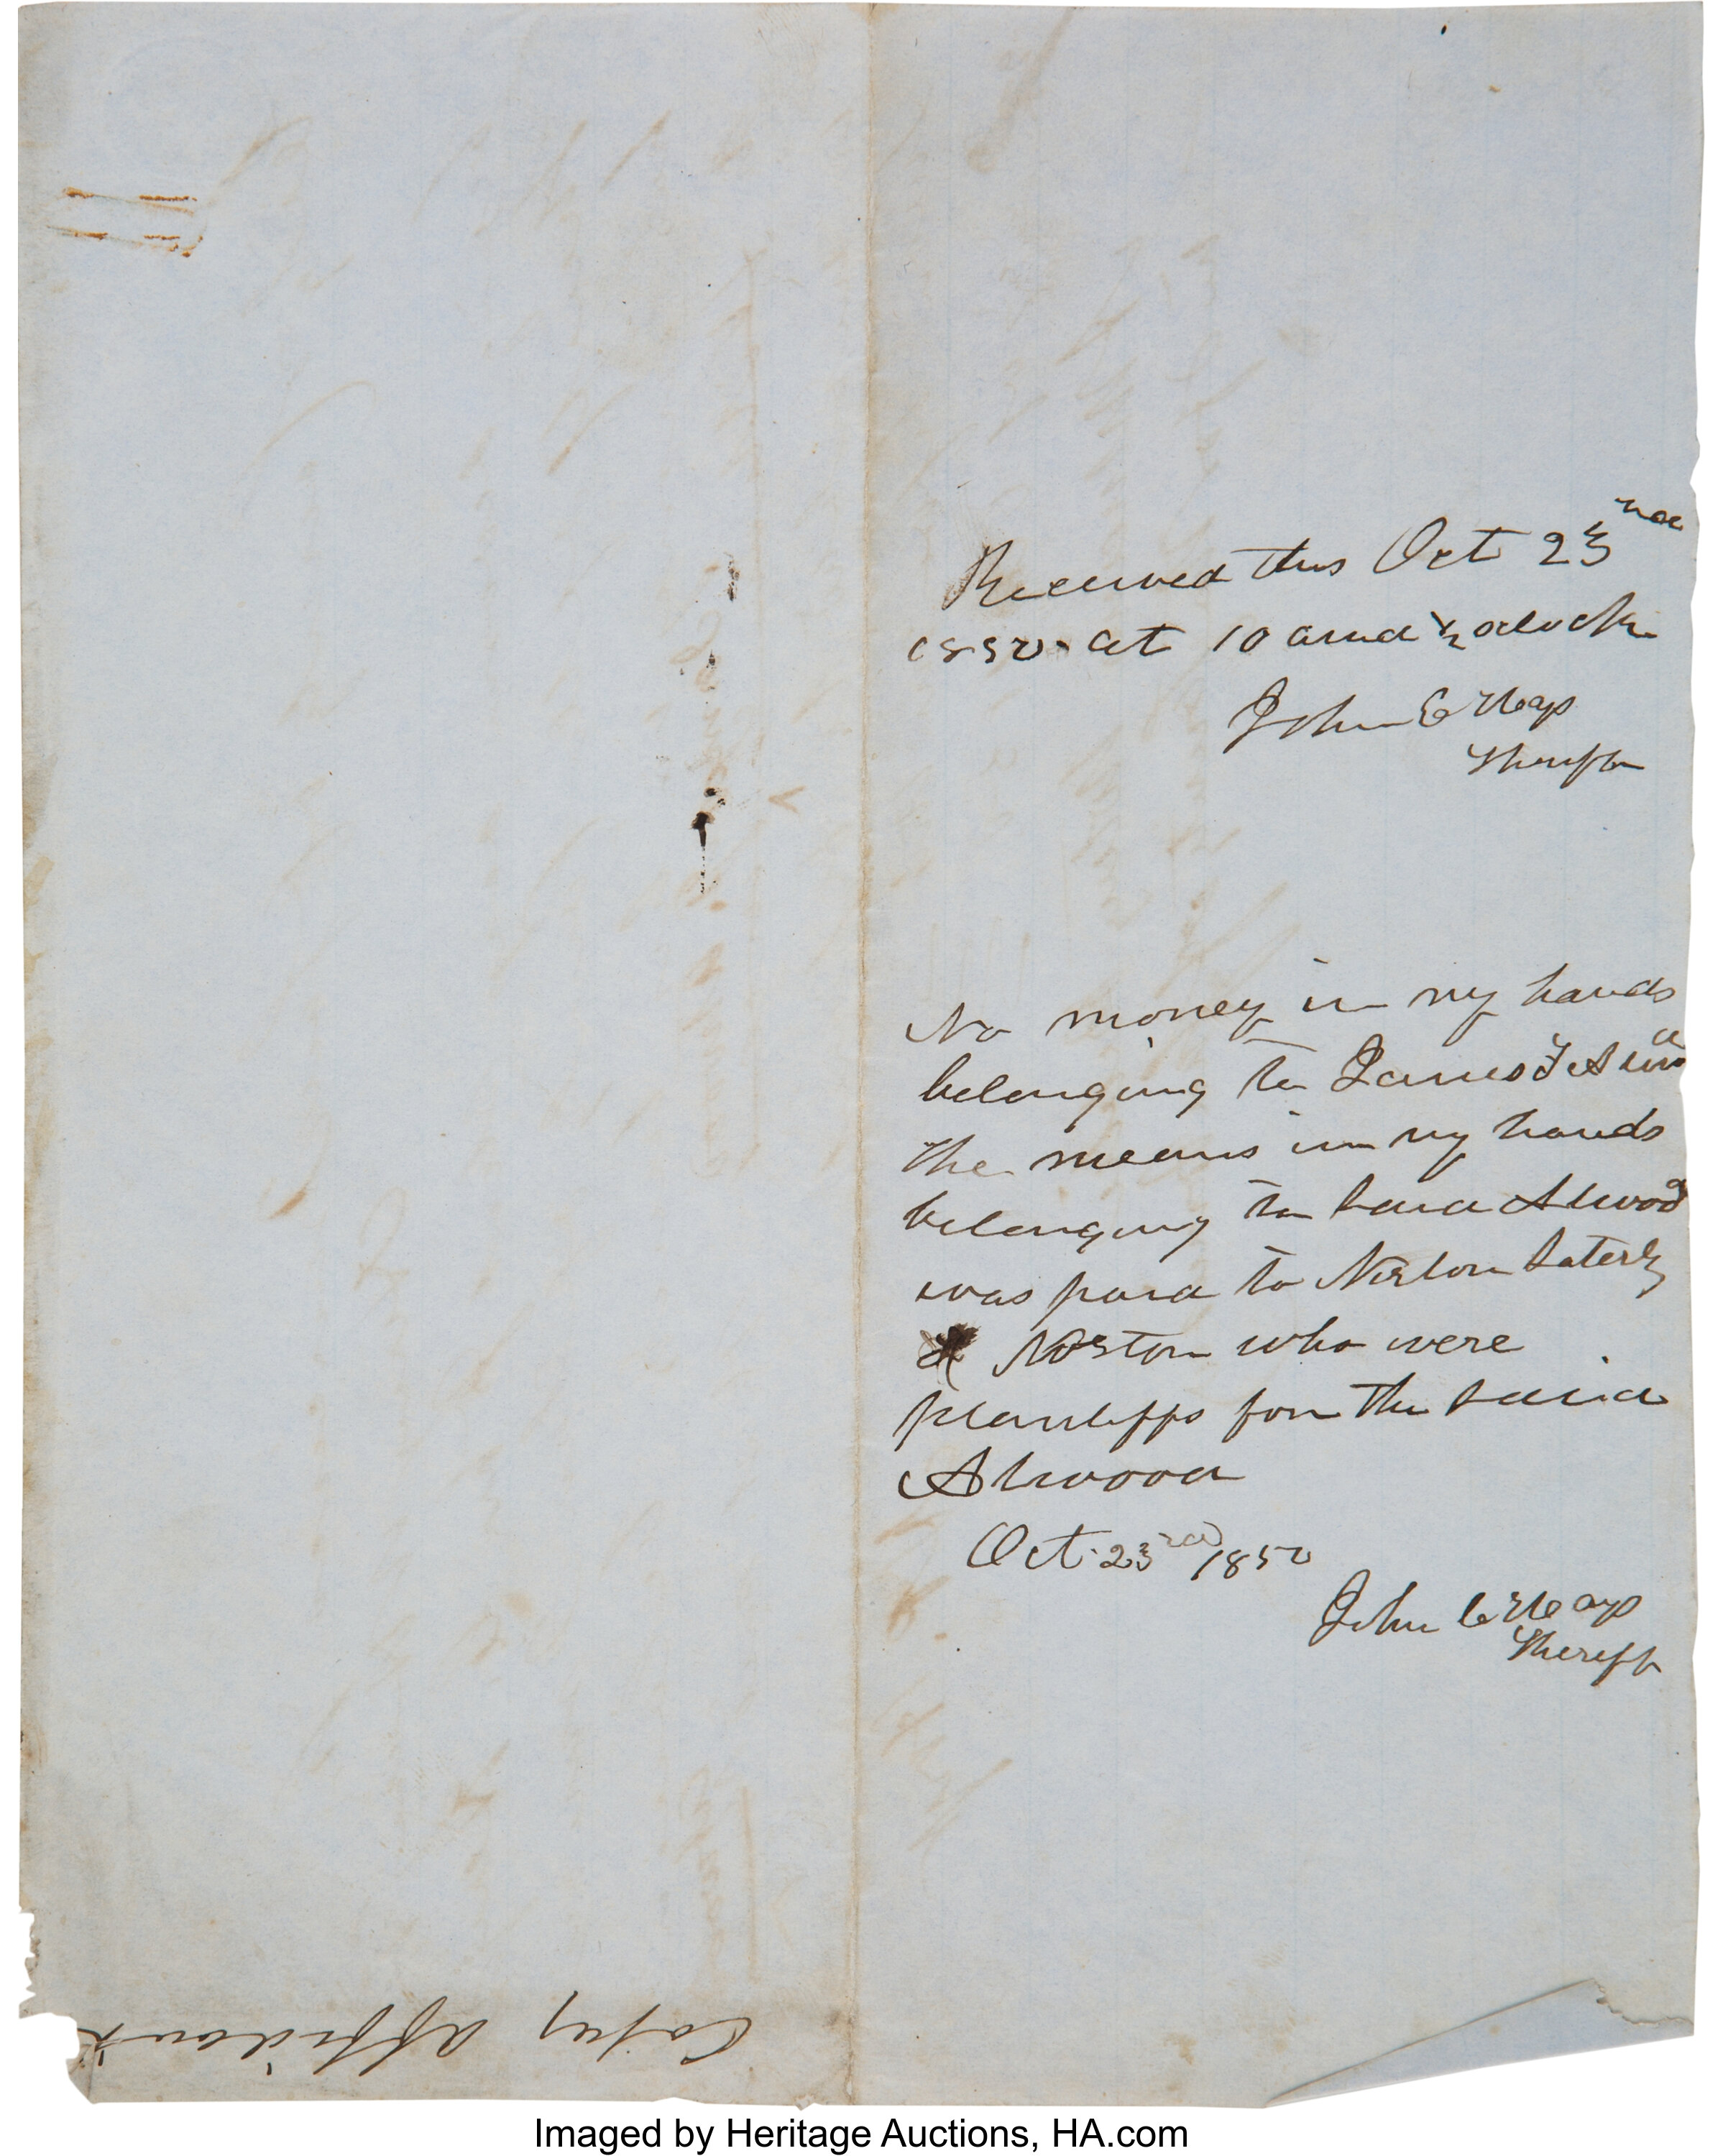 Received this Oct 23
1850 at 10 and ½ oclock
John C Hays
Sheriff
No money in my hands
belonging to James
the means in my hands
belonging to said Atwood
was paid to
& Norton who were
plantiffs for the said
Atwood
Oct. 23rd 1850
John C Hays
Sheriff
Copy affidavit
Imaged by Heritage Auctions, HA.com